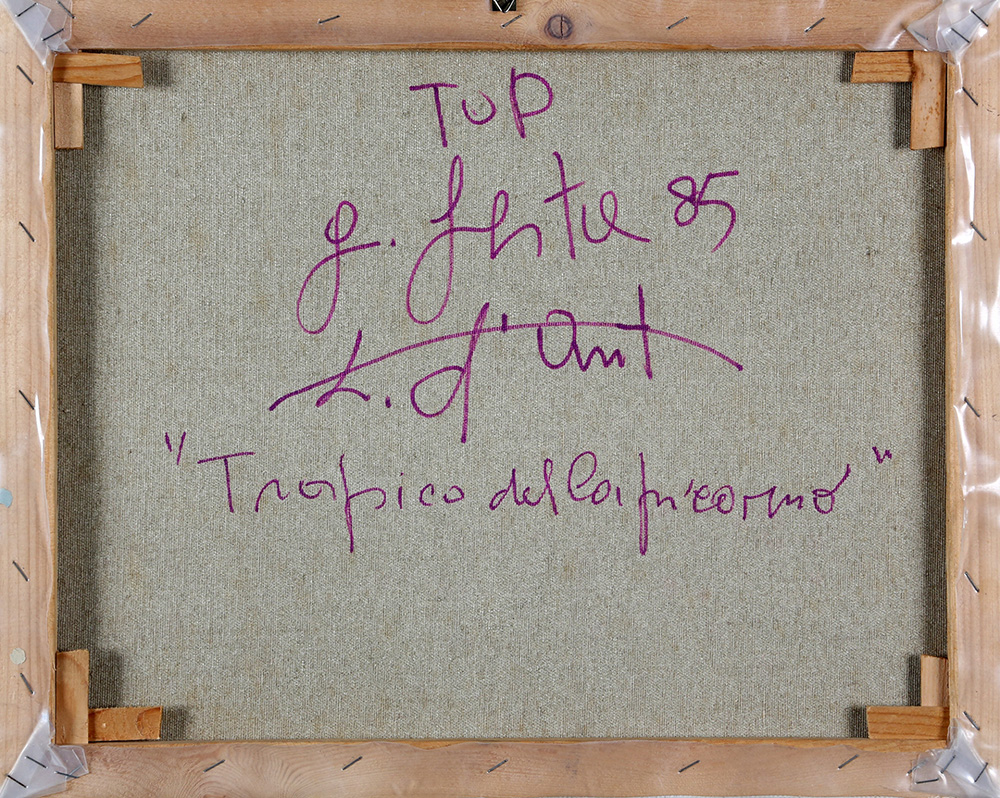 TOP
g. 85
d'Ant
"Tropico del Capricorno"